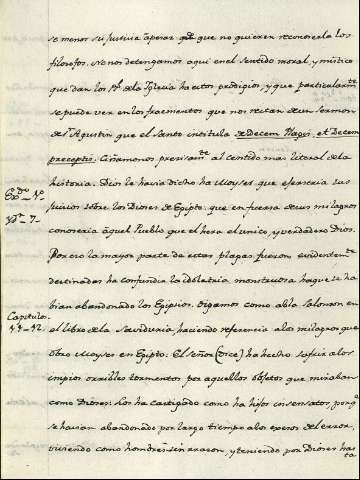 se menos su justicia àpesar que no quieren reconocerla los
filosofos. No nos detengamos aqui en el sentido moral, y mistico
que dan los P.s de la Iglesia ha estos prodigios, y que particularm.te
se puede ver en los fracmentos que nos restan de un sermon
de S.n Agustin que el santo intitula de Decem Plagis, et Decem
preceptis. Ciñamonos precisam.te al sentido mas literal de la
historia. Dios le havia dicho ha Moyses que eserceria sus
Exo. 1º
juicios sobre los Dioses de Egipto, que en fuerza de sus milagros
yd.n 7.
conoceria àquel Pueblo que el hera el unico, y verdadero Dios.
Por eso la mayor parte de estas plagas fueron evidentem.te
destinadas ha confundir la idolatria monstruosa ha que se ha
bian abandonado los Egipcios. Oigamos como abla Salomon en
Capitulos.
el libro de la Savidurìa, haciendo referencia alos milagros que
obro Moyses en Egipto: El señor (dice) ha hecho sufrir alos
impios orribles tormentos por aquellos objetos que miraban
como Dioses: Los ha castigado como ha hijos insensatos porq.e
se havian abandonado por largo tiempo alos exesos del error,
viviendo como hombres sin razon, y teniendo por Dioses has
ta